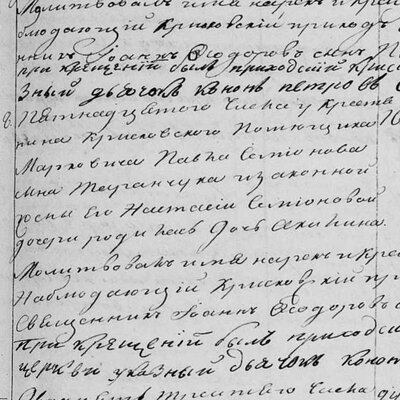 Молитвовалъ имя нарекъ и крес
блюдающій Крисковскій приходъ
никъ Іоаннъ Ѳеодоровъ сынъ
при крещеніи былъ приходскій
зный дьячокъ Кононъ Петровъ
8. Пятнадцетого Числа у Кресть
нина Крисковского Помющика
Марковича Павла Семіонова
сына Таранчука из законной
жены Его Настасіи Семіоновой
дочери родилась дочь Акилина.
Молитвовалъ имя нарекъ и кре
Наблюдающій Крисковскій пр
Священникъ Іоаннъ Ѳеодоровъ
при крещеніи былъ приходск
церкви указный дьячокъ Конон
Тритцетого Числа